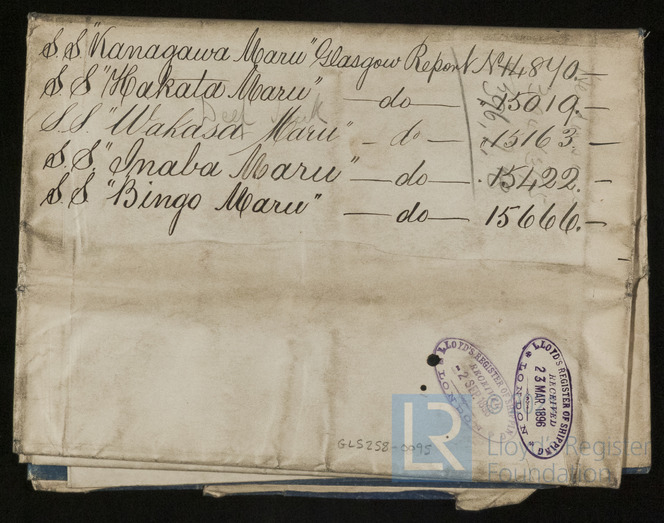 S.S. "Kanagawa Maru" Glasgow Report No 14870.—
S S "Hakata Maru" —do— 15019.—
S.S. "Wakasa Maru" — do — 15163.—
S.S. "Inaba Maru" —do— 15422.—
S.S. "Bingo Maru" —do— 15666.—
LLOYD'S REGISTER OF SHIPPING
RECEIVED
2 SEP
LONDON
LLOYD'S REGISTER OF SHIPPING
RECEIVED
23 MAR 1896
LONDON
GLS258-0095
LR
Lloyd's Register
Foundation